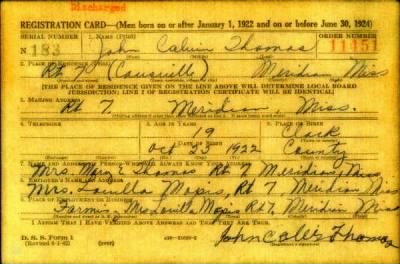 Discharged
REGISTRATION CARD—(Men born on or after January 1, 1922 and on or before June 30, 1924)
SERIAL NUMBER 1. NAME (Print) ORDER NUMBER
N 183 John Calvin Thomas 11151
(First) (Middle) (Last)
2. PLACE OF RESIDENCE (Print)
Rt 7. (Causeville) Meridian Miss
[THE PLACE OF RESIDENCE GIVEN ON THE LINE ABOVE WILL DETERMINE LOCAL BOARD
JURISDICTION; LINE 2 OF REGISTRATION CERTIFICATE WILL BE IDENTICAL]
3. MAILING ADDRESS
Rt 7. Meridian, Miss.
4. TELEPHONE 5. AGE IN YEARS 6. PLACE OF BIRTH
19 Clark
DATE OF BIRTH
Oct 20 1922 County
7. NAME AND ADDRESS OF PERSON WHO WILL ALWAYS KNOW YOUR ADDRESS
Mrs. Mary E Thomas Rt 7 Meridian, Miss
8. EMPLOYER'S NAME AND ADDRESS
Mrs. Louilla Rt 7 Meridian Miss
9. PLACE OF EMPLOYMENT OR BUSINESS
Farming Mrs Louilla Rt 7, Meridian Miss
I AFFIRM THAT I HAVE VERIFIED ABOVE ANSWERS AND THAT THEY ARE TRUE.
D. S. S. Form 1
(Revised 6-1-42)
John Thomas